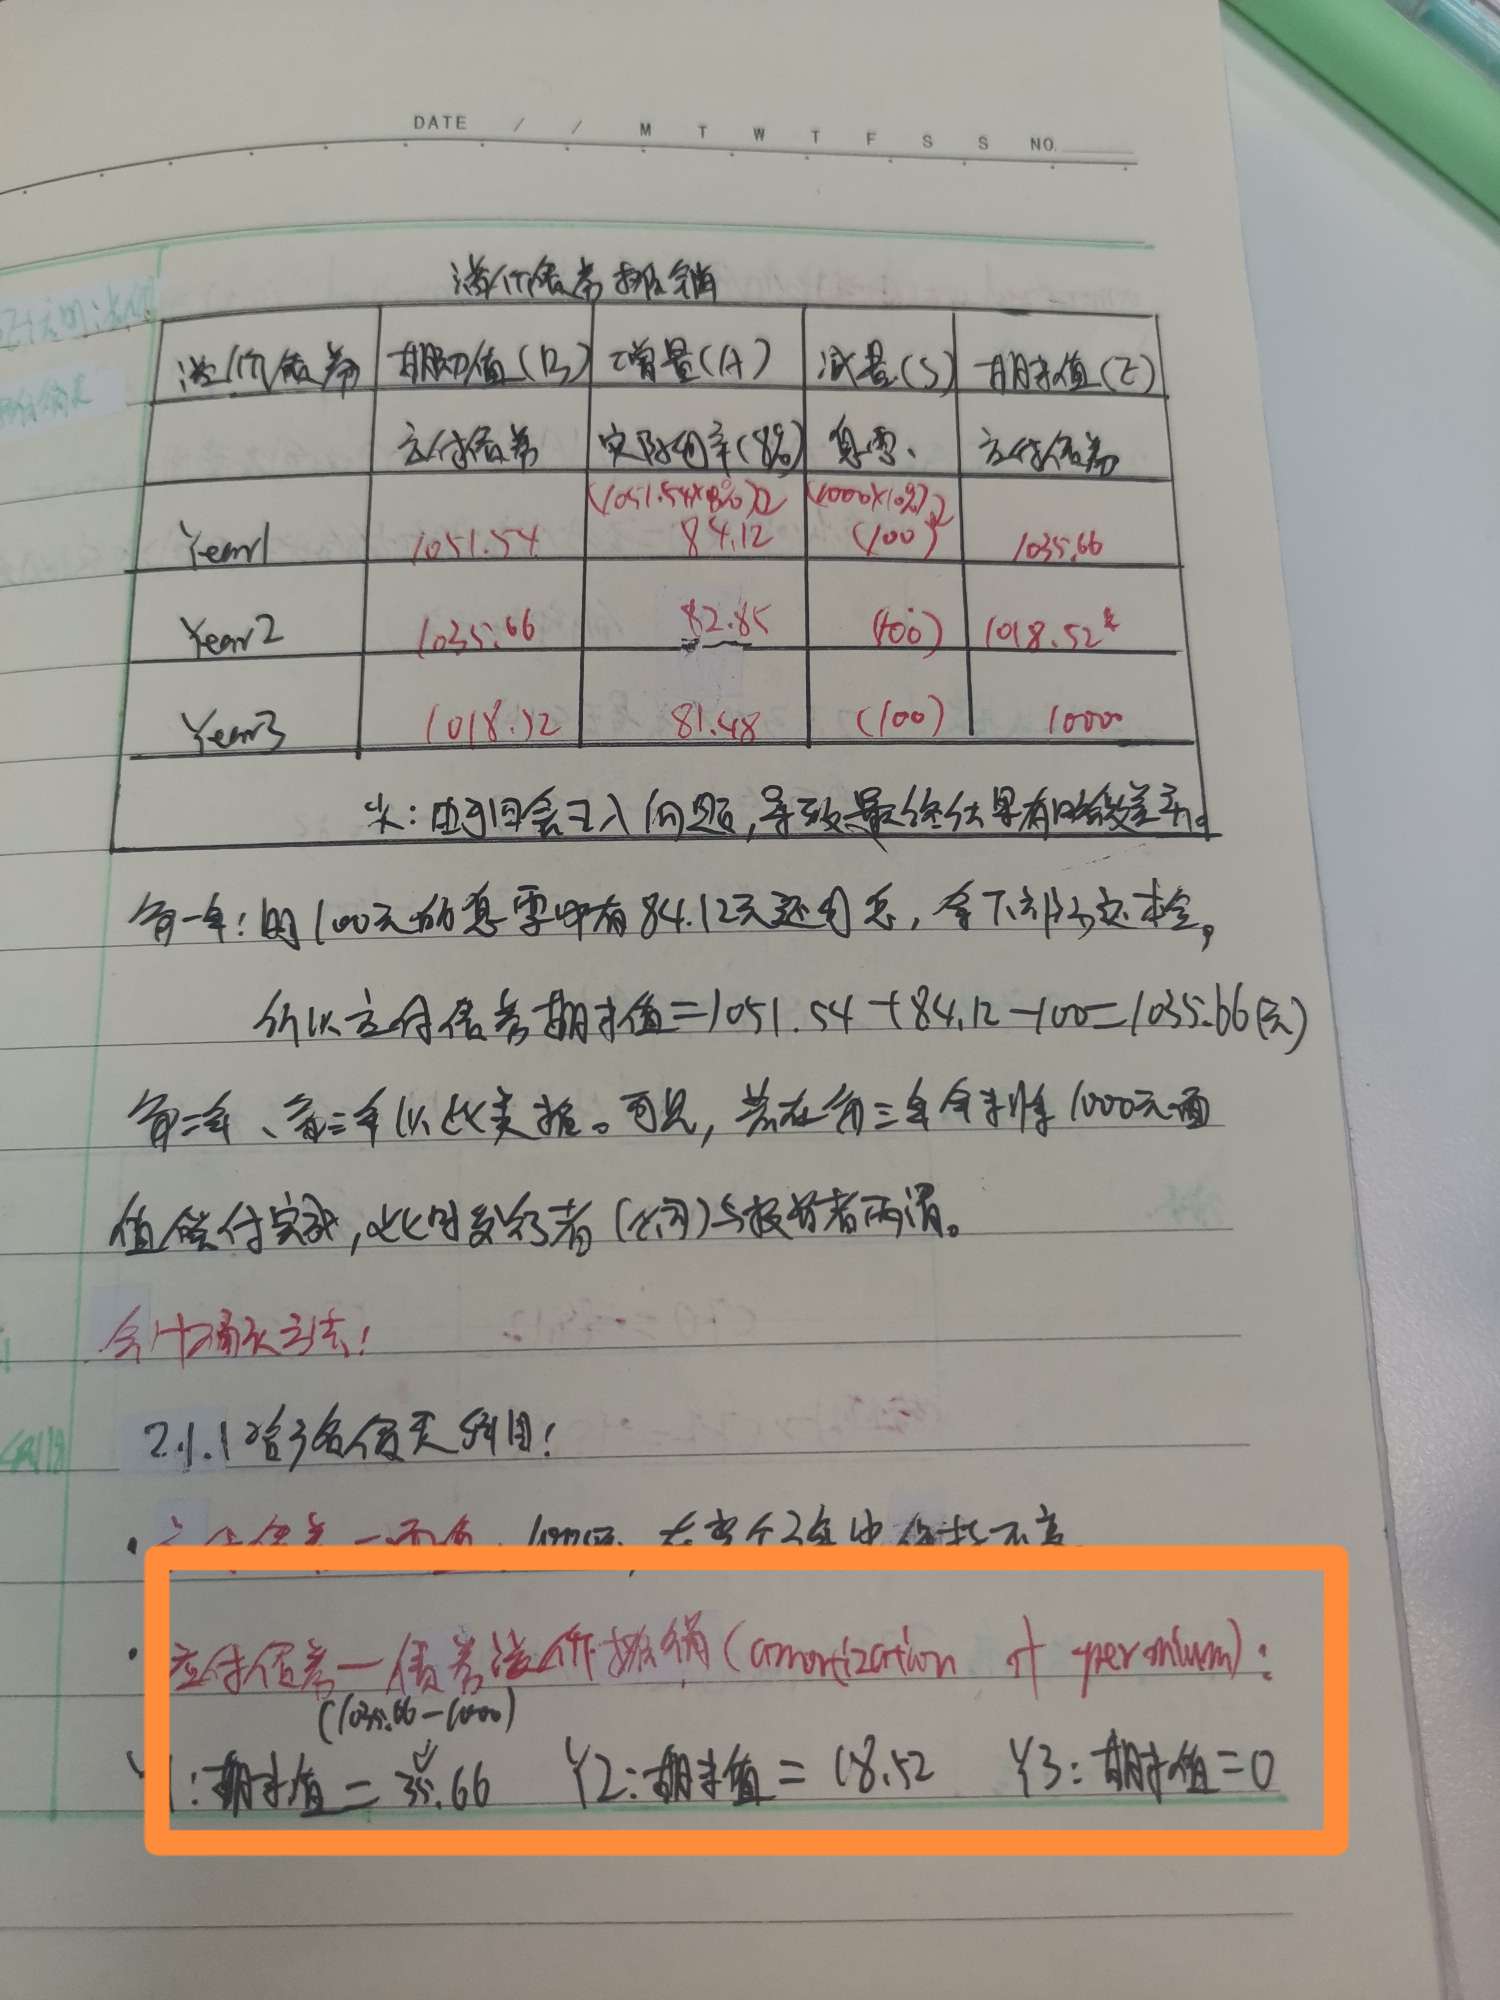 DATE / / M T W T F S S NO.
溢价债券摊销
溢价债券 期初值(B) 增量(A) 减量(S) 期末值(E)
应付债券 实际利率(8%) 息票 应付债券
(1051.54×8%) (1000×10%)
Year1 1051.54 84.12 (100) 1035.66
Year2 1035.66 82.85 (100) 1018.52*
Year3 1018.52 81.48 (100) 1000
*:由于四舍五入问题,导致最终结果有略微差异。
第一年:用100元的息票中有84.12元还利息,余下部分还本金,
所以应付债券期末值=1051.54+84.12-100=1035.66(元)
第二年、第三年以此类推。可见,若在第三年年末将1000元面
值偿付完成,此时发行者(公司)与投资者两清。
会计确认方法:
2.1.1 资产负债表科目:
·应付债券—面值:1000元,在这个3年中保持不变
·应付债券—债券溢价摊销(amortization of permium):
(1035.66-1000)
Y1:期末值=35.66 Y2:期末值=18.52 Y3:期末值=0